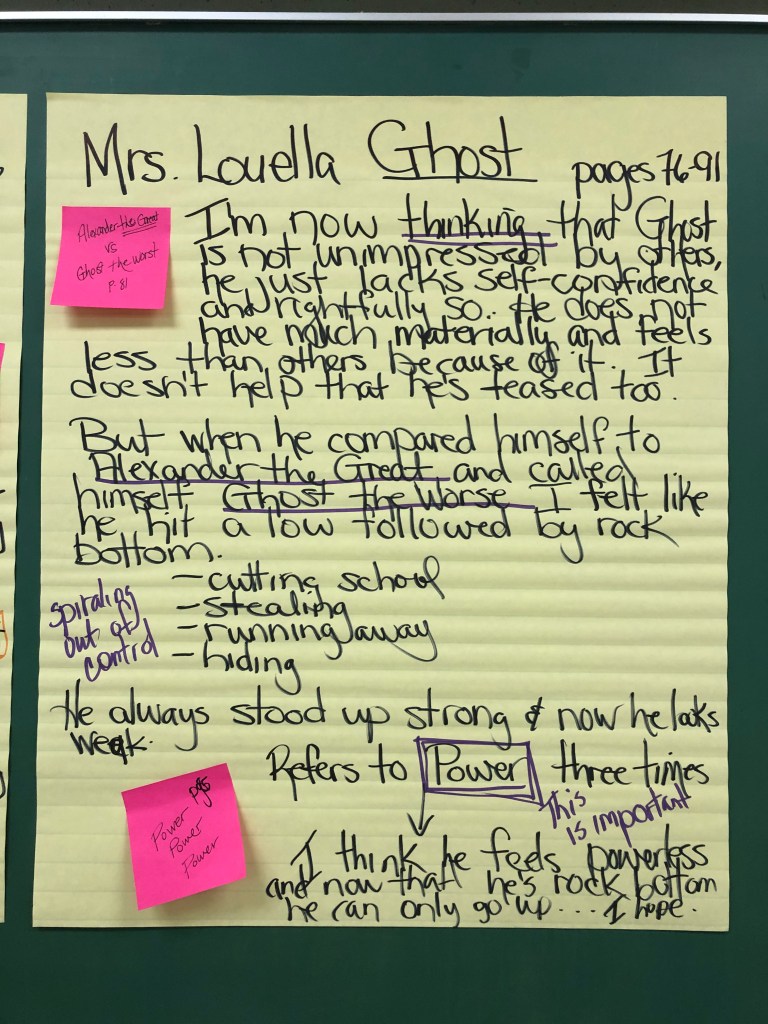 Mrs. Louella Ghost pages 76-91
Alexander the Great
vs
Ghost the worst
p. 81
I'm now thinking that Ghost
is not unimpressed by others,
he just lacks self-confidence
and rightfully so. He does not
have much materially and feels
less than others because of it. It
doesn't help that he's teased too.
But when he compared himself to
Alexander the Great and called
himself Ghost the Worse I felt like
he hit a low followed by rock
bottom.
spiraling
out of
control
- cutting school
- stealing
- running away
- hiding
He always stood up strong & now he looks
weak.
Refers to Power three times
This
is important
Power
Power
Power
I think he feels powerless
and now that he's rock bottom
he can only go up... I hope.